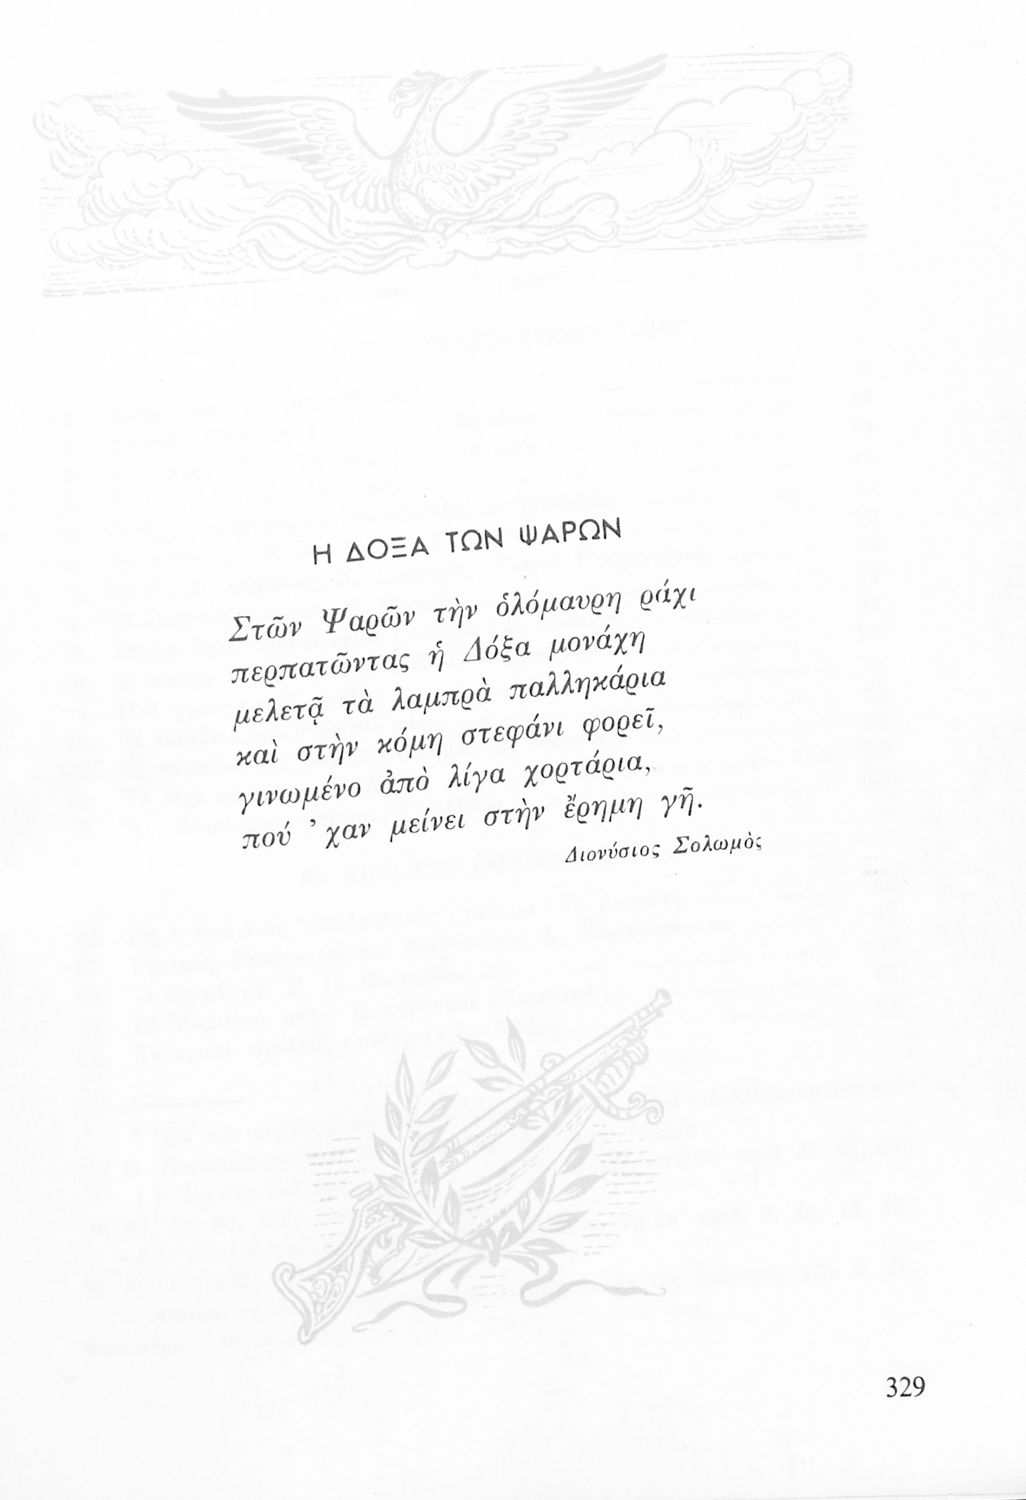 Η ΔΟΞΑ ΤΩΝ ΨΑΡΩΝ
Στῶν Ψαρῶν τὴν ὁλόμαυρη ράχι
περπατῶντας ἡ Δόξα μονάχη
μελετᾷ τὰ λαμπρὰ παλληκάρια
καὶ στὴν κόμη στεφάνι φορεῖ,
γινωμένο ἀπὸ λίγα χορτάρια,
πού ’ χαν μείνει στὴν ἔρημη γῆ.
Διονύσιος Σολωμὸς
329